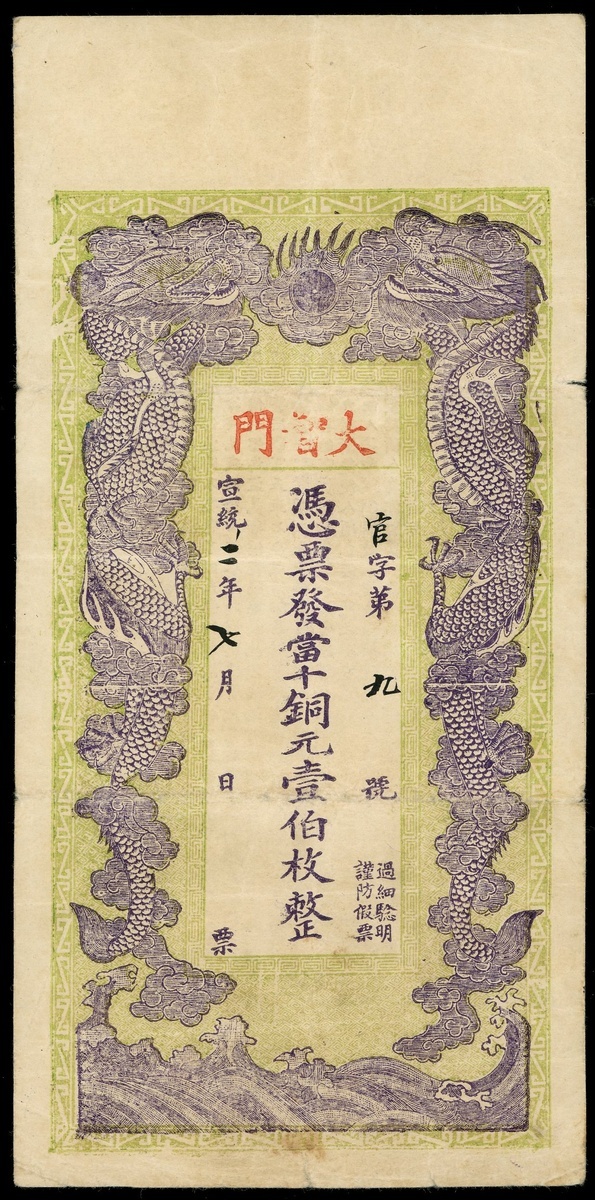 大智門
官字第九號
過細驗明
謹防假票
憑票發當十銅元壹伯枚整
宣統二年七月 日票